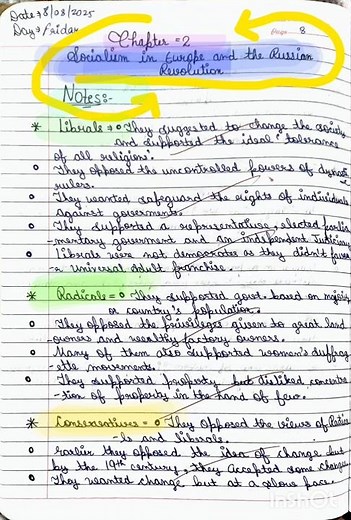 Date → 8/03/2025
Day → Friday
Page 8
Chapter = 2
Socialism in Europe and the Russian
Revolution
Notes:-
* Librals → o They suggested to change the society
and supported the ideal 'tolerance
of all religion'.
o They opposed the uncontrolled powers of dynastic
rulers.
o They wanted safeguard the rights of individuals
against goverments.
o They supported a representative, elected parlia
-mentary goverment and an independent Judiciary
o Librals were not democrates as they didn't favour
a universal adult franchise.
* Radicals = o They supported govt. based on majority
or country's population.
o They opposed the privileges given to great land
owners and wealthy factory owners.
o Many of them also supported women's suffrag
-ette movements.
o They supported property but disliked concentra
-tion of property in the hand of few.
* Conservatives = o They opposed the views of Radica
-ls and librals.
o Earlier they opposed the idea of change but
by the 19th century, they accepted some changes
o They wanted change but at a slow pace.
InShOt